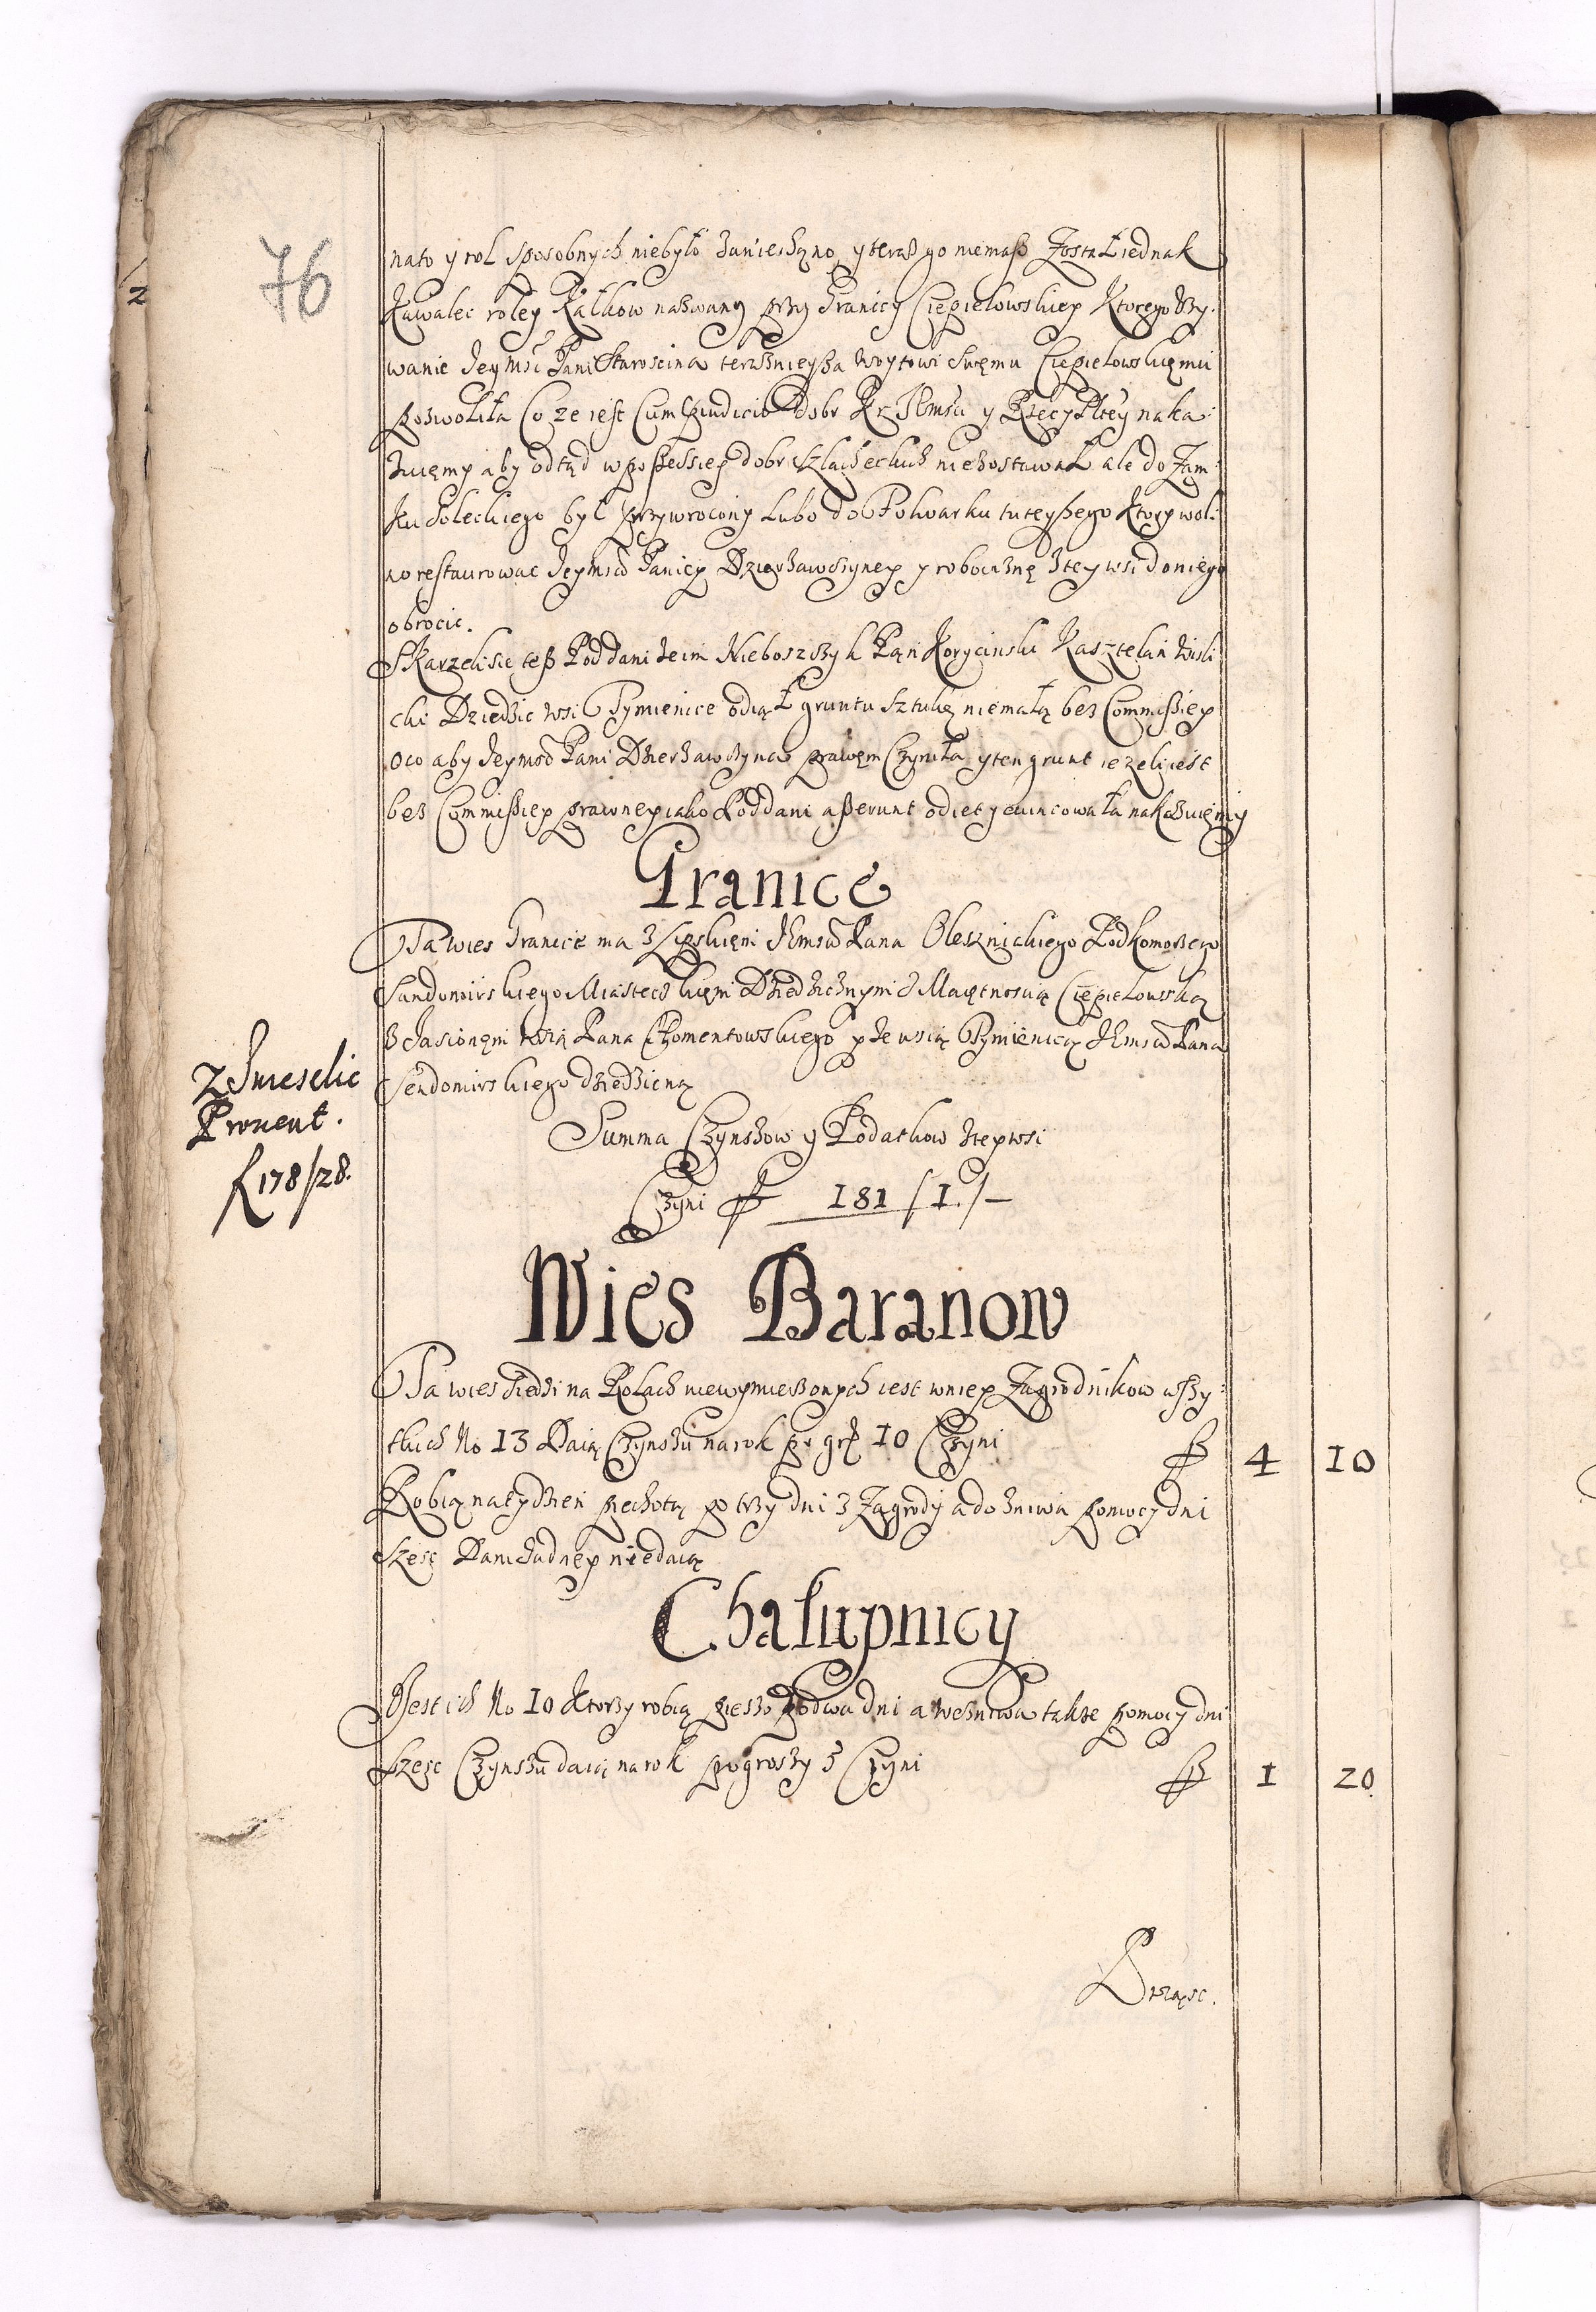 76
2
nato y rol sposobnych niebyło zaniechano, y teraz go niemasz Została iednak
Kawalec roley Kątkow nazwany przy Granicy Ciepielowskiey Ktorego Vzy:
wanie Jeymsć Pani Starościna teraznieysza Woytowi swemu Ciepielowskiemu
pozwoliła Co ze iest Cum Dobr Kr Jkmści y Rzeczypltey naka:
zuięmy aby odtąd w possessiey dobr szlacheckich niezostawał ale do Zam:
ku Soleckiego był przywrocony Lubo do Folwarku tuteyszego Ktory wol:
no restaurowac Jeymsci Paniey Dzierzawczyney y robociznę z tey wsi do niego
obrocic.
Skarzeli się tesz Poddani ze im Nieboszczyk Pan Koryciński Kasztelan Wisli
cki Dziedzic wsi Tymienice odiął gruntu sztukę niemałą bez Commissiey
Oco aby Jeymsć Pani Dzierzawczyna prawem Czyniła y ten grunt iezeli iest
bez Commissiey prawney iako Poddani asserunt odięty ewincowała nakazuięmy
Granice
Ta wies Granice ma z Lipskięm Jkmsci Pana Olesznickiego Podkomorzego
Sandomirskiego Miasteczkięm Dziedzicznym z Maiętnoscią Ciepielowską
z Jasionęm wsią Pana Chomentowskiego y ze wsią Tymienicą Jkmsci Pana
Sendomirskiego dziedziczną
Summa Czynszow y Podatkow z tey wsi
Czyni f 181 / 1. / –
Z Prouent.
f 178/28.
Wies Baranow
Ta wies siedzi na Rolach niewymierzonych iest w niey Zagrodnikow wszy:
tkich No 13 Daią Czynszu na rok po gr 10 Czyni f 4 10
Robią na tydzien piechotą po trzy dni z Zagrody a do zniwa pomocy dni
szesc Dani zadney niedaią
Chałupnicy
Jest ich No 10 Ktorzy robią pieszo po dwa dni a we zniwa także pomocy dni
szesc Czynszu daią na rok po groszy 5 Czyni f 1 20